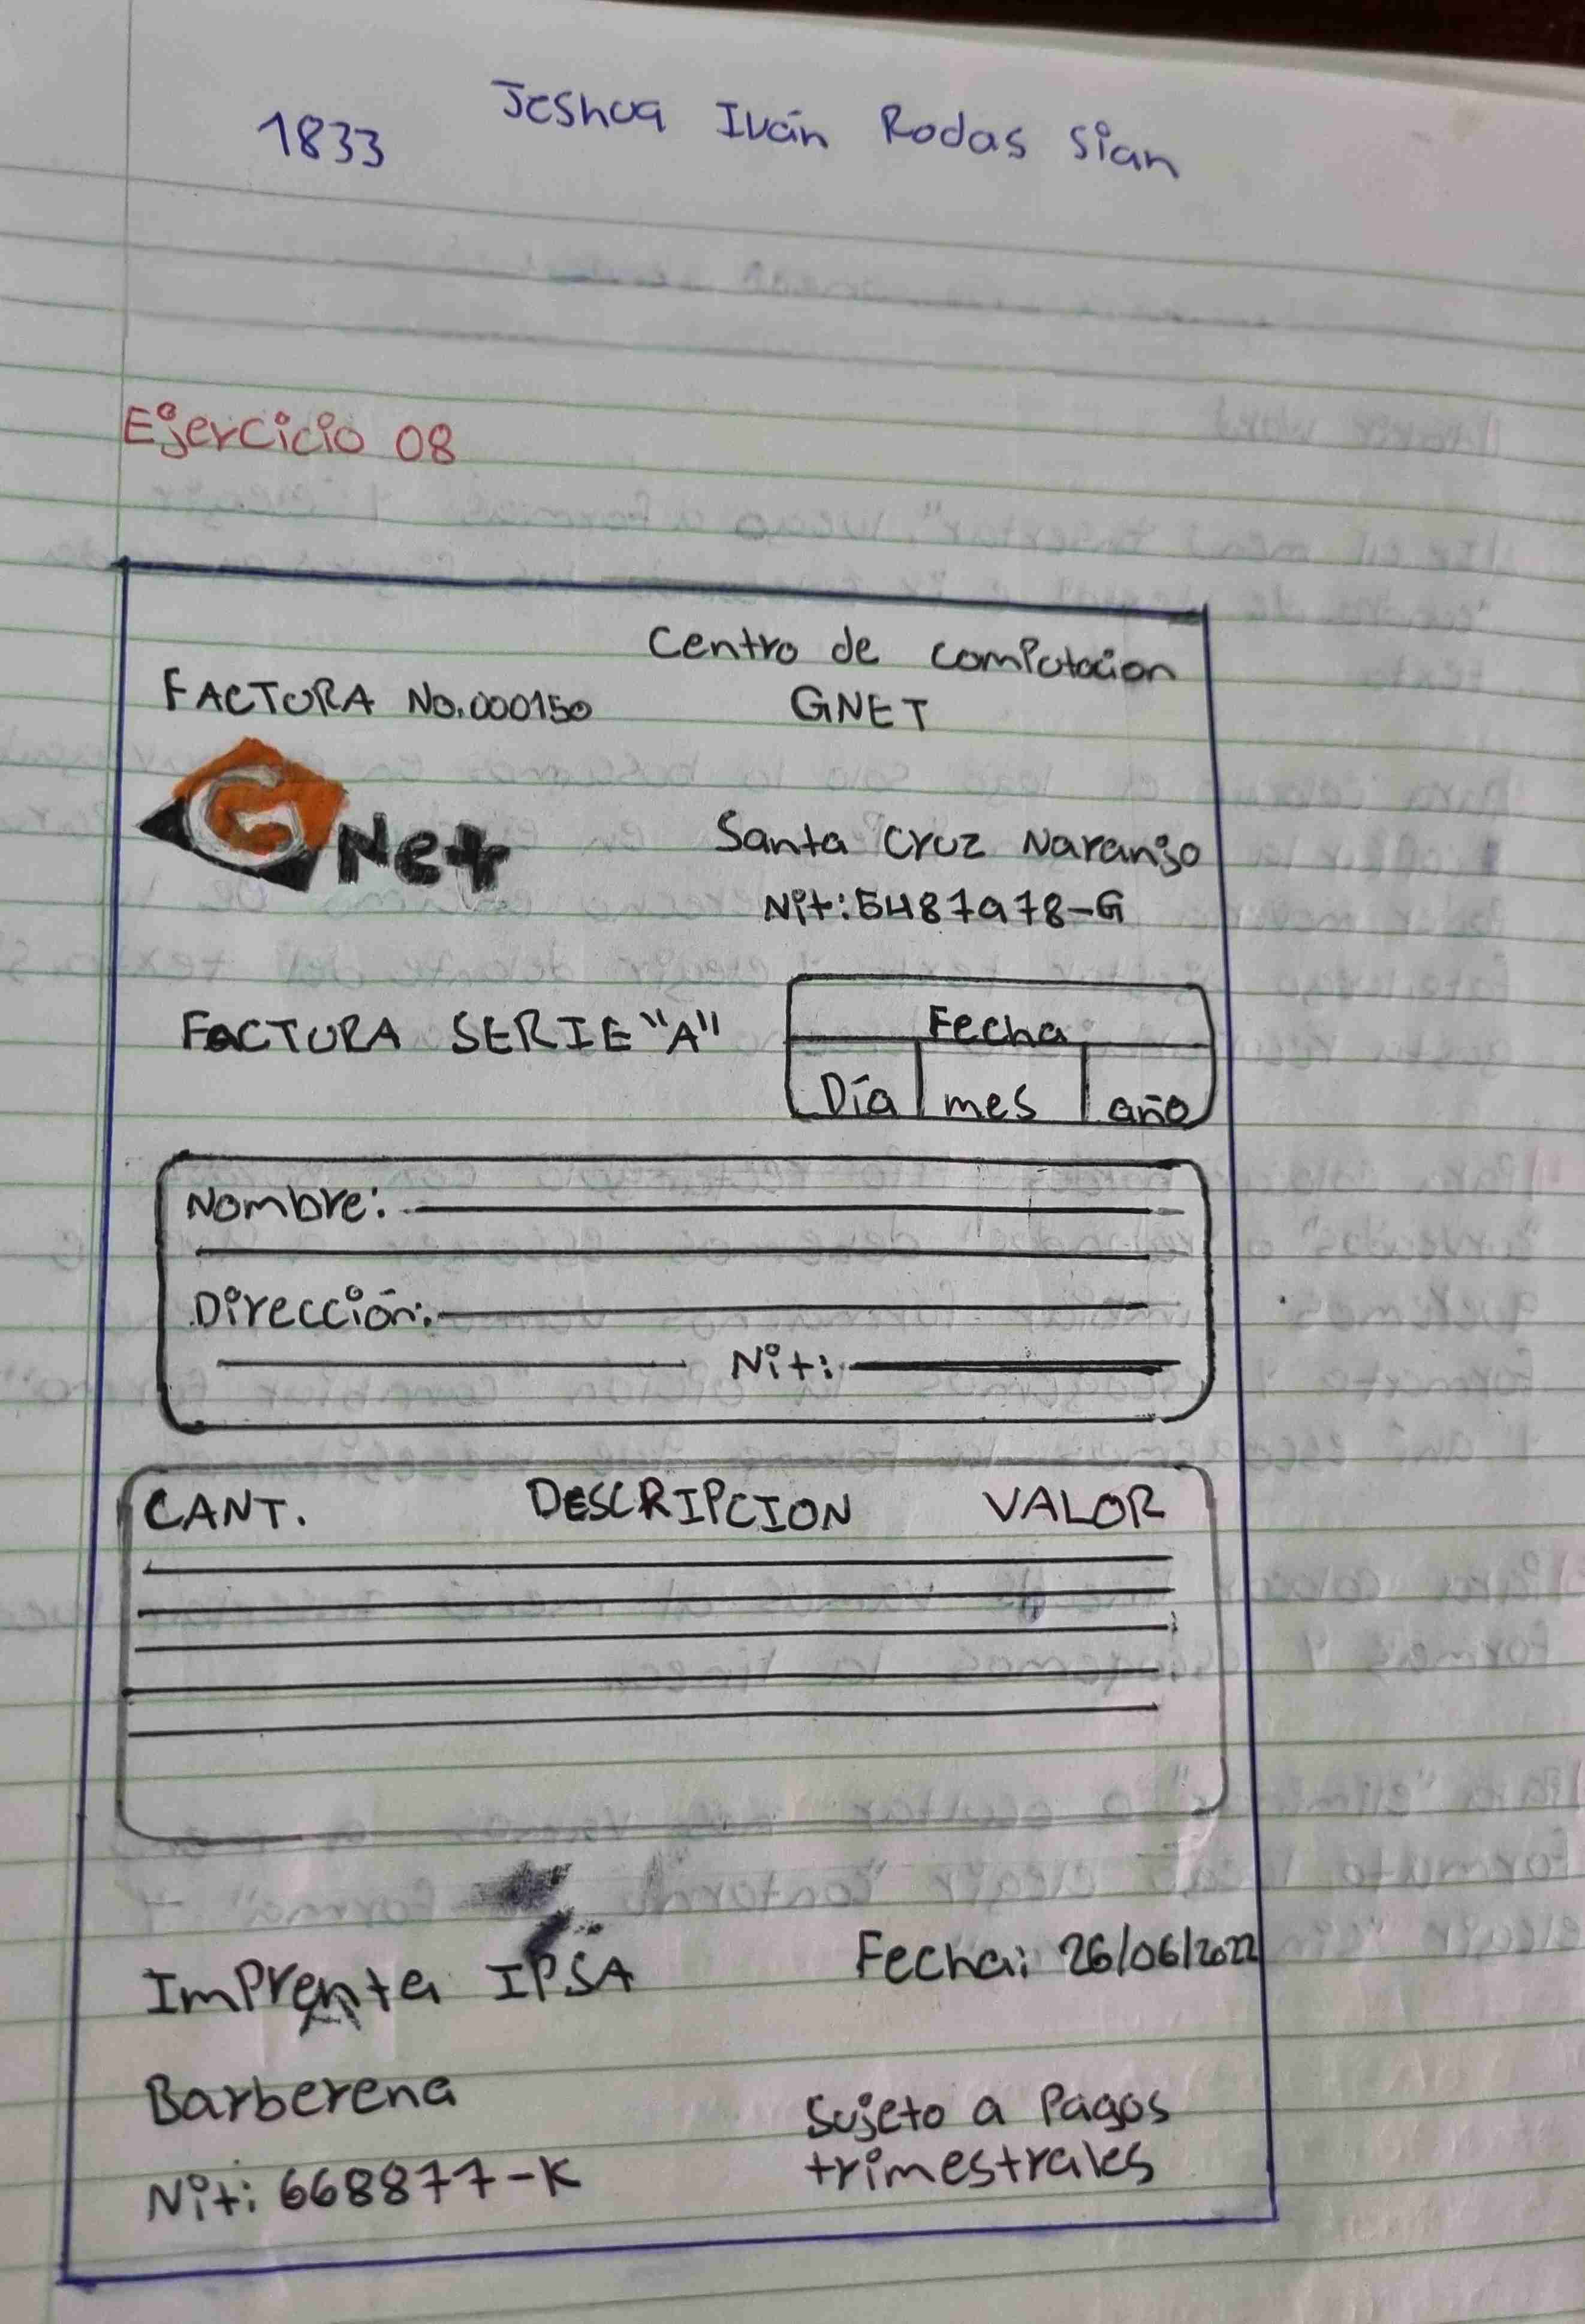 1833 Jeshua Iván Rodas Sian
Ejercicio 08
Centro de computacion
FACTURA No.000150 GNET
GNet
Santa Cruz Naranjo
Nit:5487978-G
FACTURA SERIE "A"
Fecha
Día mes año
Nombre:
Dirección:
Nit:
CANT. DESCRIPCION VALOR
Imprenta IPSA Fecha: 26/06/2022
Barberena
Sujeto a Pagos
trimestrales
Nit: 668877-K